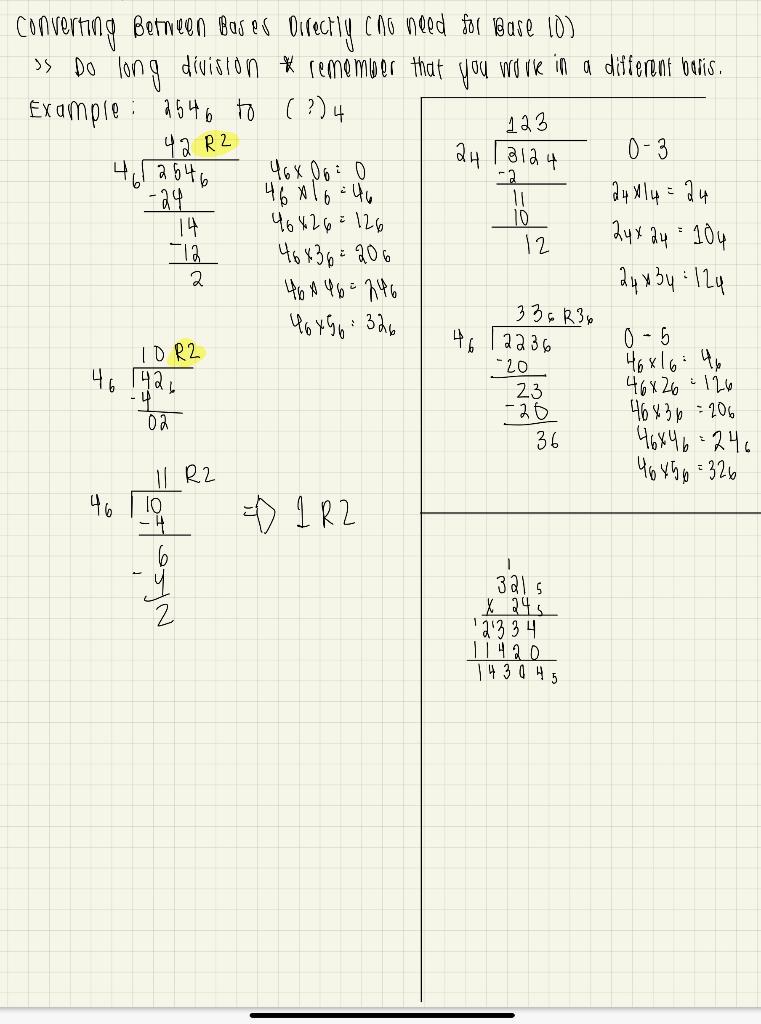 Converting Between Bases Directly (no need for Base 10)
>> Do long division * remember that you work in a different basis.
Example: 254₆ to (?)₄
42 R2
4₆ 254₆
-24
14
-12
2
4₆x0₆=0
4₆x1₆=4₆
4₆x2₆=12₆
4₆x3₆=20₆
4₆x4₆=24₆
4₆x5₆=32₆
10 R2
4₆ 42₆
-4
02
11 R2
4₆ 10
-4
6
-4
2
⇒ 1 R2
123
2₄ 312₄
-2
11
10
12
0-3
2₄x1₄=2₄
2₄x2₄=10₄
2₄x3₄=12₄
33₆ R3₆
4₆ 223₆
-20
23
-20
3₆
0-5
4₆x1₆=4₆
4₆x2₆=12₆
4₆x3₆=20₆
4₆x4₆=24₆
4₆x5₆=32₆
1
321₅
x 24₅
12¹334
11420
14304₅